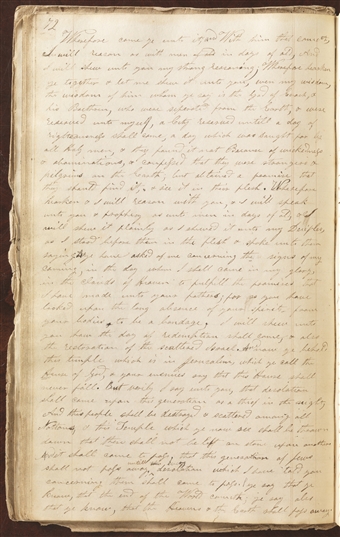 72
Wherefore come ye unto it and With him that cometh,
I will reason as with men in days of old, And
I will shew unto you my strong reasoning, Wherefore hearken
ye together & let me shew it unto you, even my wisdom,
the wisdom of him whom ye say is the God of Enoch, &
his Brethren, who were seperated from the Earth, & were
reserved unto myself, a City reserved untill a day of
righteousness shall come, a day which was sought for by
all Holy men, & they found it not Because of wickedness
& abominations, & confessed that they were strangers &
pilgrims on the Earth, but obtained a promise that
they should find it, & see it in their flesh. Wherefore
hearken & I will reason with you, & I will speak
unto you & prophecy as unto men in days of old, & I
will shew it plainly as I shewed it unto my Desiples
as I stood before them in the flesh & spoke unto them
saying as ye have asked of me concerning the signs of my
coming, in the day when I shall come in my glory
in the clouds of Heaven to fulfill the promises that
I have made unto your fathers, for as you have
looked upon the long absence of your spirits from
your bodies, to be a bondage. I will shew unto
you how the day of redemption shall come, & also
the restoration of the scattered Israel. And now ye behold
this temple which is in Jerusalem, which ye call the
House of God, & your enemies say that this House shall
never fall. But verily I say unto you, that desolation
shall come upon this generation as a thief in the night
And this people shall be destroyed & scattered among all
Nations, & this Temple which ye now see shall be thrown
down that there shall not be left one stone upon another
& it shall come to pass, that this generation of Jews
shall not pass away until every desolation which I have told you
concerning them shall come to pass. ye say that ye
know, that the end of the World cometh, ye say also
that ye know, that the Heavens & the Earth shall pass away